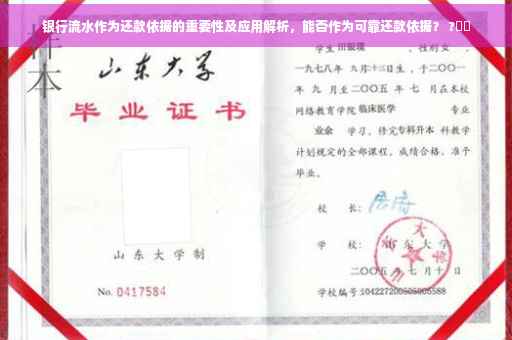 银行流水作为还款依据的重要性及应用解析，能否作为可靠还款依据？ ?
样
本
山东大学
毕业证书
山东大学制
No. 0417584
学生
一九七八年 九月十三日生，于二〇〇一
年 九 月至二〇〇五 年 七 月在本校
网络教育学院 临床医学 专业
业余 学习，修完专科升本 科教学
计划规定的全部课程，成绩合格，准予
毕业。
校 长：
学 校： 山东大学
二〇〇五年七月十日
学校编号: